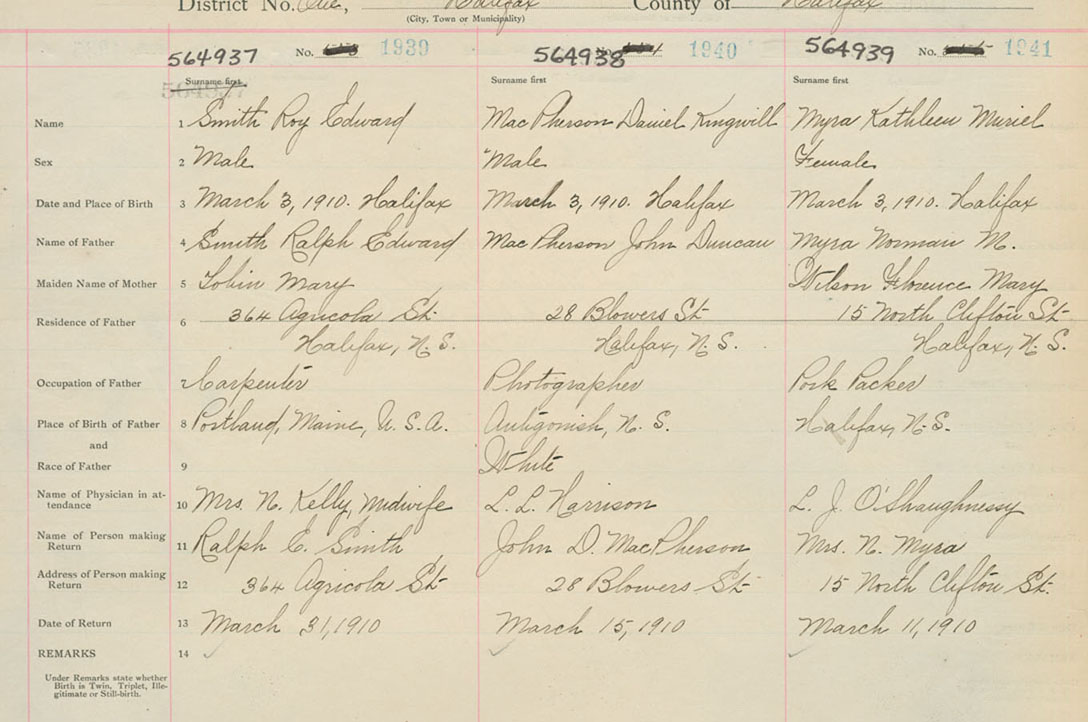 District No. One, Halifax County of Halifax
(City, Town or Municipality)
564937 No. 1939 564938 No. 1940 564939 No. 1941
Surname first Surname first Surname first
564937
Name 1 Smith Roy Edward MacPherson Daniel Kingwill Myra Kathleen Muriel
Sex 2 Male Male Female
Date and Place of Birth 3 March 3, 1910. Halifax March 3, 1910. Halifax March 3, 1910. Halifax
Name of Father 4 Smith Ralph Edward MacPherson John Duncan Myra Norman M.
Maiden Name of Mother 5 Tobin Mary Wilson Florence Mary
Residence of Father 6 364 Agricola St. 28 Blowers St 15 North Clifton St.
Halifax, N.S. Halifax, N.S. Halifax, N.S.
Occupation of Father 7 Carpenter Photographer Pork Packer
Place of Birth of Father 8 Portland, Maine, U.S.A. Antigonish, N.S. Halifax, N.S.
and
Race of Father 9 White
Name of Physician in at-
tendance 10 Mrs. N. Kelly, Midwife L. L. Harrison L. J. O'Shaughnessy
Name of Person making
Return 11 Ralph E. Smith John D. MacPherson Mrs. N. Myra
Address of Person making
Return 12 364 Agricola St. 28 Blowers St. 15 North Clifton St.
Date of Return 13 March 31, 1910 March 15, 1910 March 11, 1910
REMARKS 14
Under Remarks state whether
Birth is Twin, Triplet, Ille-
gitimate or Still-birth.